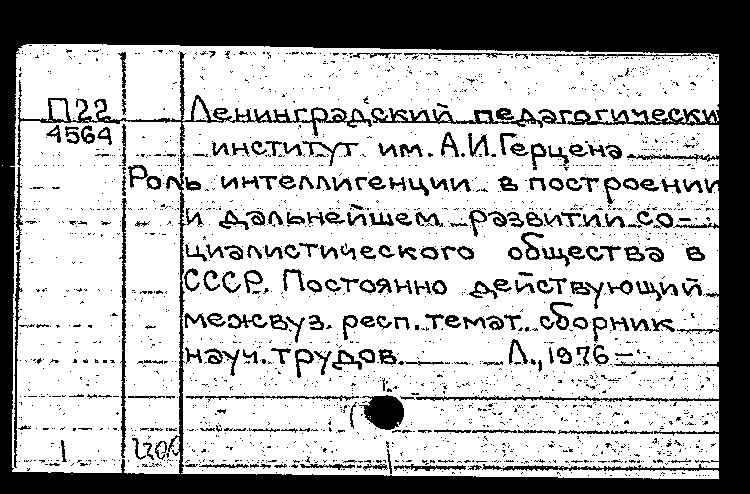 П22 Ленинградский педагогически
4564
институт им. А.И.Герцена
Роль интеллигенции в построении
и дальнейшем развитии со-
циалистического общества в
СССР. Постоянно действующий
межвуз. респ. темат. сборник
науч. трудов. Л., 1976 –